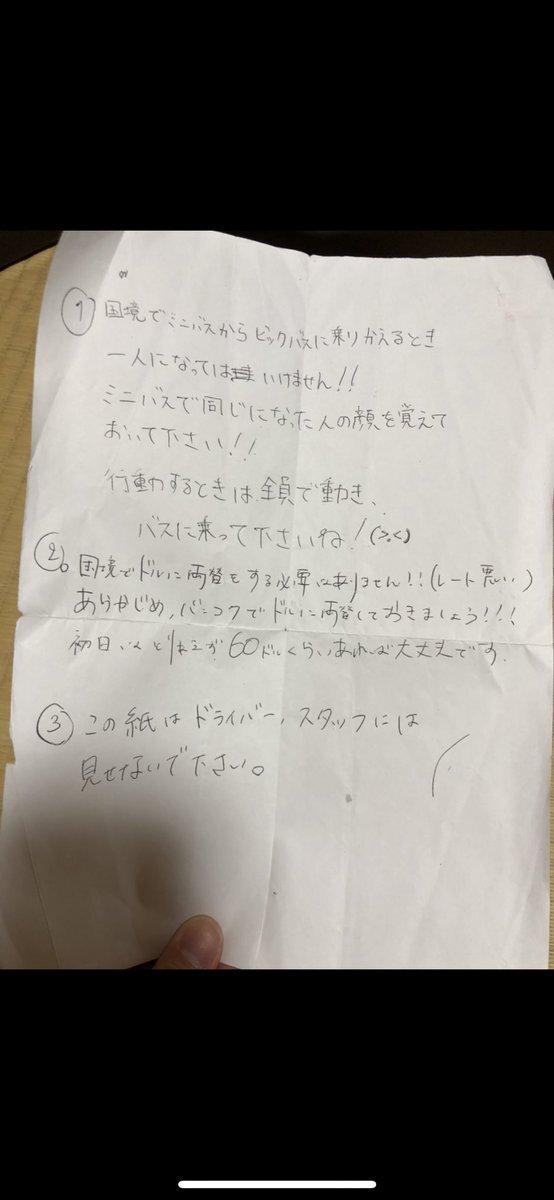 ① 国境でミニバスからビックバスに乗りかえるとき
一人になっては いけません!!
ミニバスで同じになった人の顔を覚えて
おいて下さい!!
行動するときは全員で動き、
バスに乗って下さいね!(>.<)
②。国境でドルに両替をする必要はありません!!(レート悪い)
あらかじめ,バンコクでドルに両替しておきましょう!!!
初日 とりあえず60ドルくらいあれば大丈夫です.
③ この紙はドライバー,スタッフには
見せないで下さい。